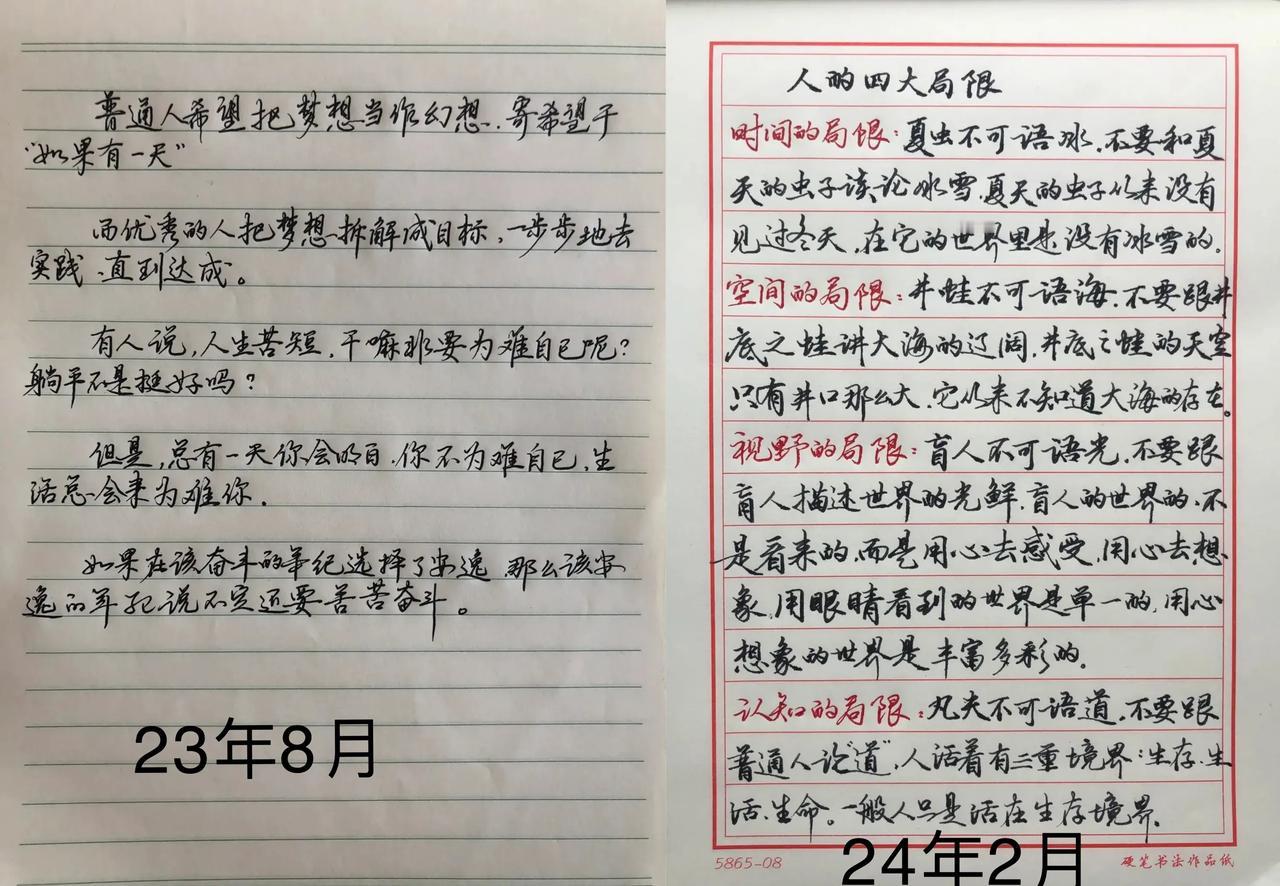 普通人希望把梦想当作幻想、寄希望于
“如果有一天”
而优秀的人把梦想拆解成目标，一步步地去
实践、直到达成。
有人说，人生苦短，干嘛非要为难自己呢？
躺平不是挺好吗？
但是，总有一天你会明白，你不为难自己，生
活总会来为难你.
如果在该奋斗的年纪选择了安逸，那么该安
逸的年纪说不定还要苦苦奋斗。
23年8月
人的四大局限
时间的局限：夏虫不可语冰，不要和夏
天的虫子谈论冰雪，夏天的虫子从来没有
见过冬天，在它的世界里是没有冰雪的.
空间的局限：井蛙不可语海，不要跟井
底之蛙讲大海的辽阔，井底之蛙的天空
只有井口那么大，它从来不知道大海的存在。
视野的局限：盲人不可语光，不要跟
盲人描述世界的光鲜，盲人的世界的，不
是看来的，而是用心去感受，用心去想
象，用眼睛看到的世界是单一的，用心
想象的世界是丰富多彩的.
认知的局限：凡夫不可语道，不要跟
普通人论“道”，人活着有三重境界：生存、生
活、生命。一般人只是活在生存境界.
5865-08
硬笔书法作品纸
24年2月